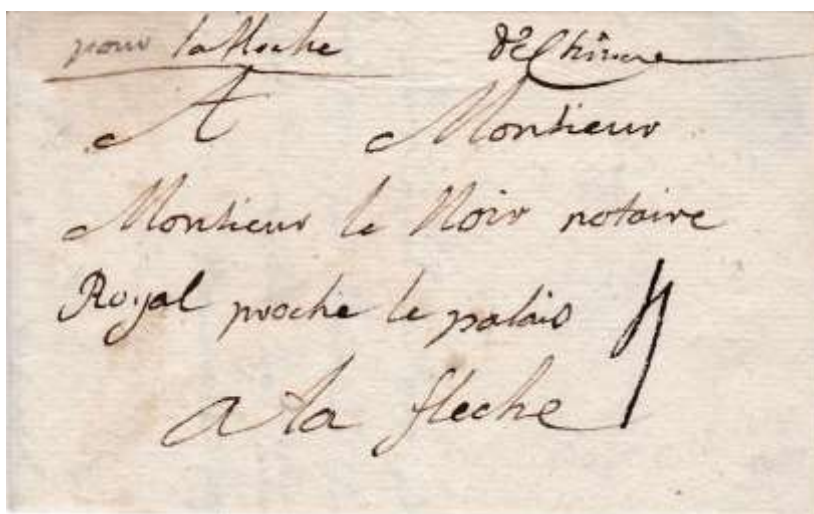 pour la fleche deChinon
A Monsieur
Monsieur le Noir notaire
Royal proche le palais 4
a la fleche